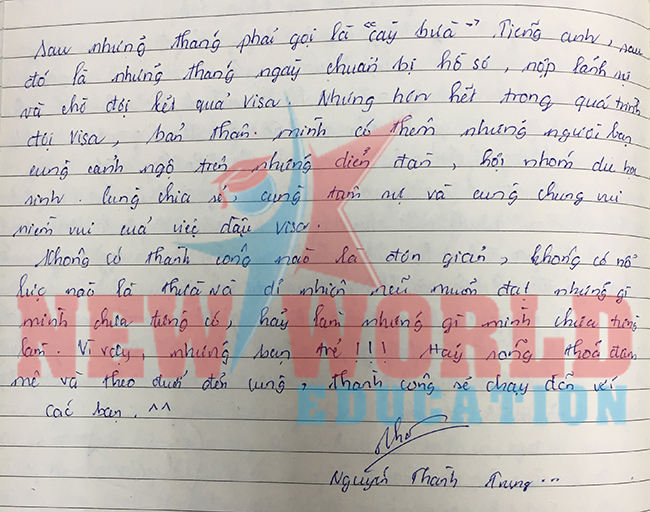 Sau những tháng phải gọi là "cày bừa" Tiếng anh, sau
đó là những tháng ngày chuẩn bị hồ sơ, nộp lãnh sự
và chờ đợi kết quả visa. Nhưng hơn hết trong quá trình
đợi visa, bản thân mình có thêm những người bạn
cùng cảnh ngộ trên những diễn đàn, hội nhóm du học
sinh. Cùng chia sẻ, cùng tâm sự và cùng chung vui
niềm vui của việc đậu visa.
Không có thành công nào là đơn giản, không có nỗ
lực nào là thừa và dĩ nhiên nếu muốn đạt những gì
mình chưa từng có, hãy làm những gì mình chưa từng
làm. Vì vậy, những bạn trẻ !!! Hãy sống thoả đam
mê và theo đuổi đến cùng, thành công sẽ chạy đến với
các bạn. ^^
Nguyễn Thành Trung ...
NEW WORLD
EDUCATION